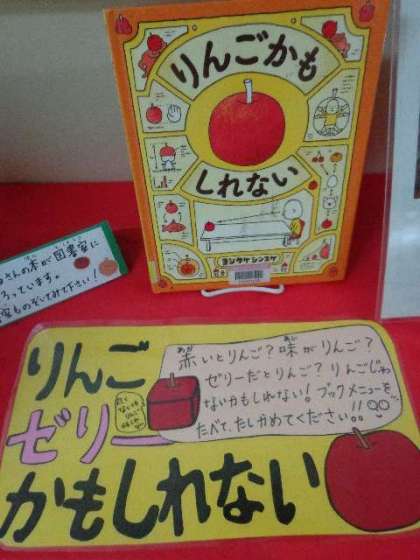 りんごかも
しれない
ヨシタケシンスケ
さんの本が図書室に
っています。
てみて下さい!
りんご
ゼリー
かもしれない
赤いとりんご?味がりんご?
ゼリーだとりんご?りんごじゃ
ないかもしれない!ブックメニューを
たべて、たしかめてください!!